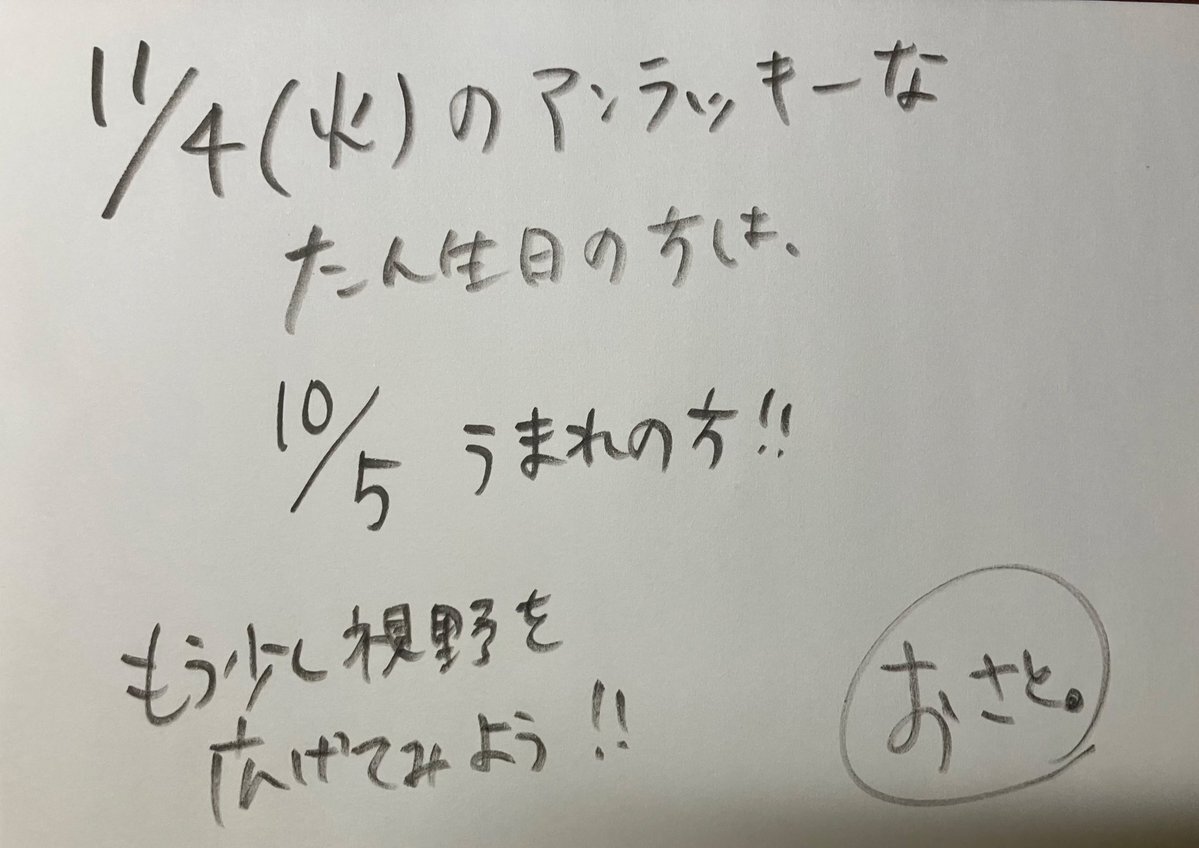 11/4(火)のアンラッキーな
たん生日の方は、
10/5 うまれの方!!
もう少し視野を
広げてみよう!!
おさと。